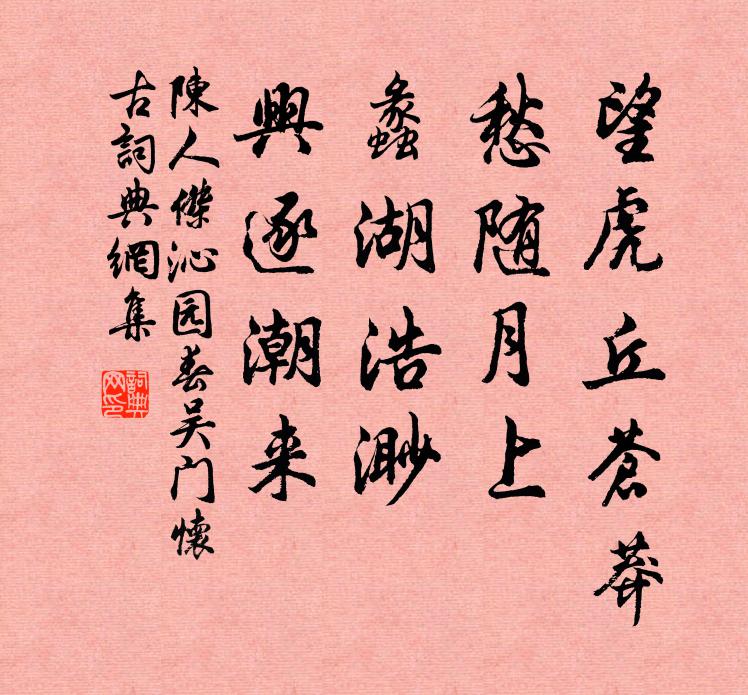 望虎丘苍莽
愁随月上
蠡湖浩渺
興逐潮来
陳人傑沁园春吴门懷
古詞典網集
詞典网印